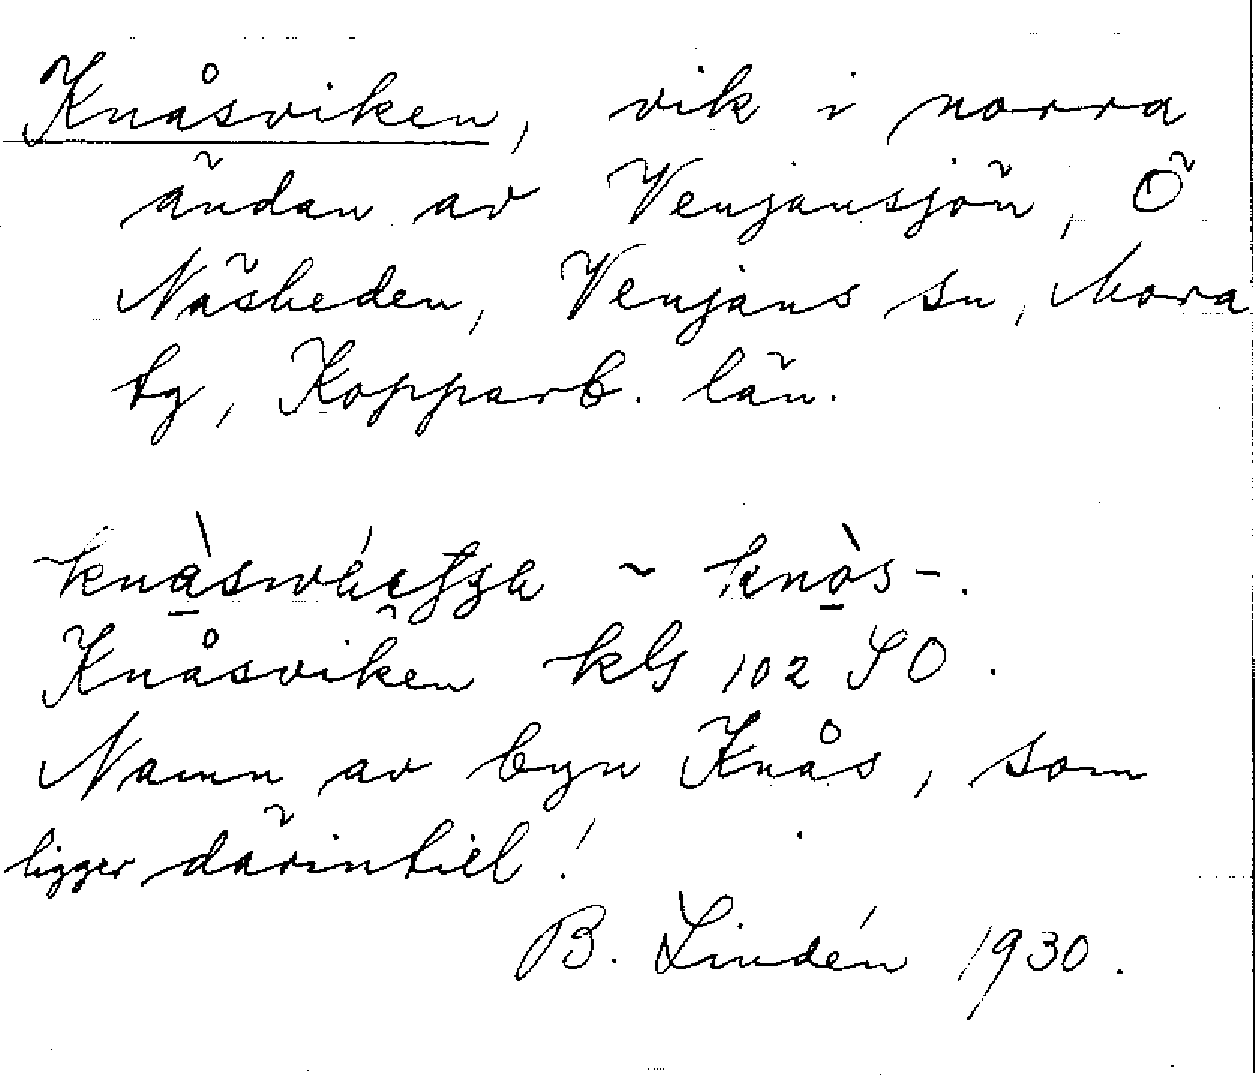 Knåsviken, vik i norra
ändan av Venjansjön, Ö
Näsheden, Venjans sn, Mora
tg, Kopparb. län.
~ knòs-.
Knåsviken kbl 102 SO.
Namn av byn Knås, som
ligger därintill!
B. Lindén 1930.